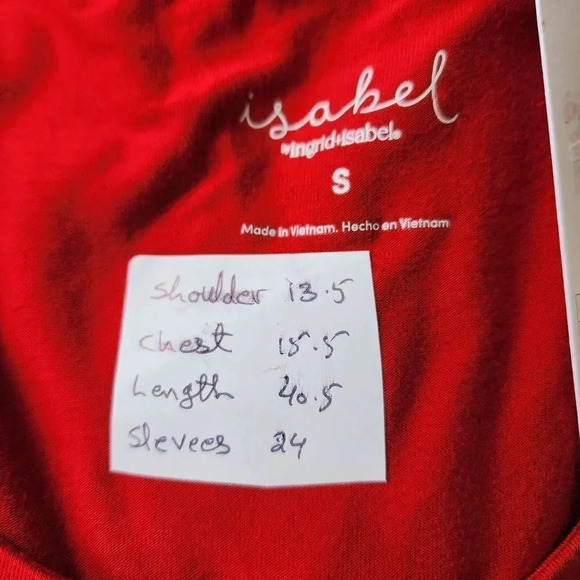 isabel
by Ingrid+Isabel®
S
Made in Vietnam. Hecho en Vietnam
Shoulder 13.5
Chest 15.5
Length 40.5
Slevees 24